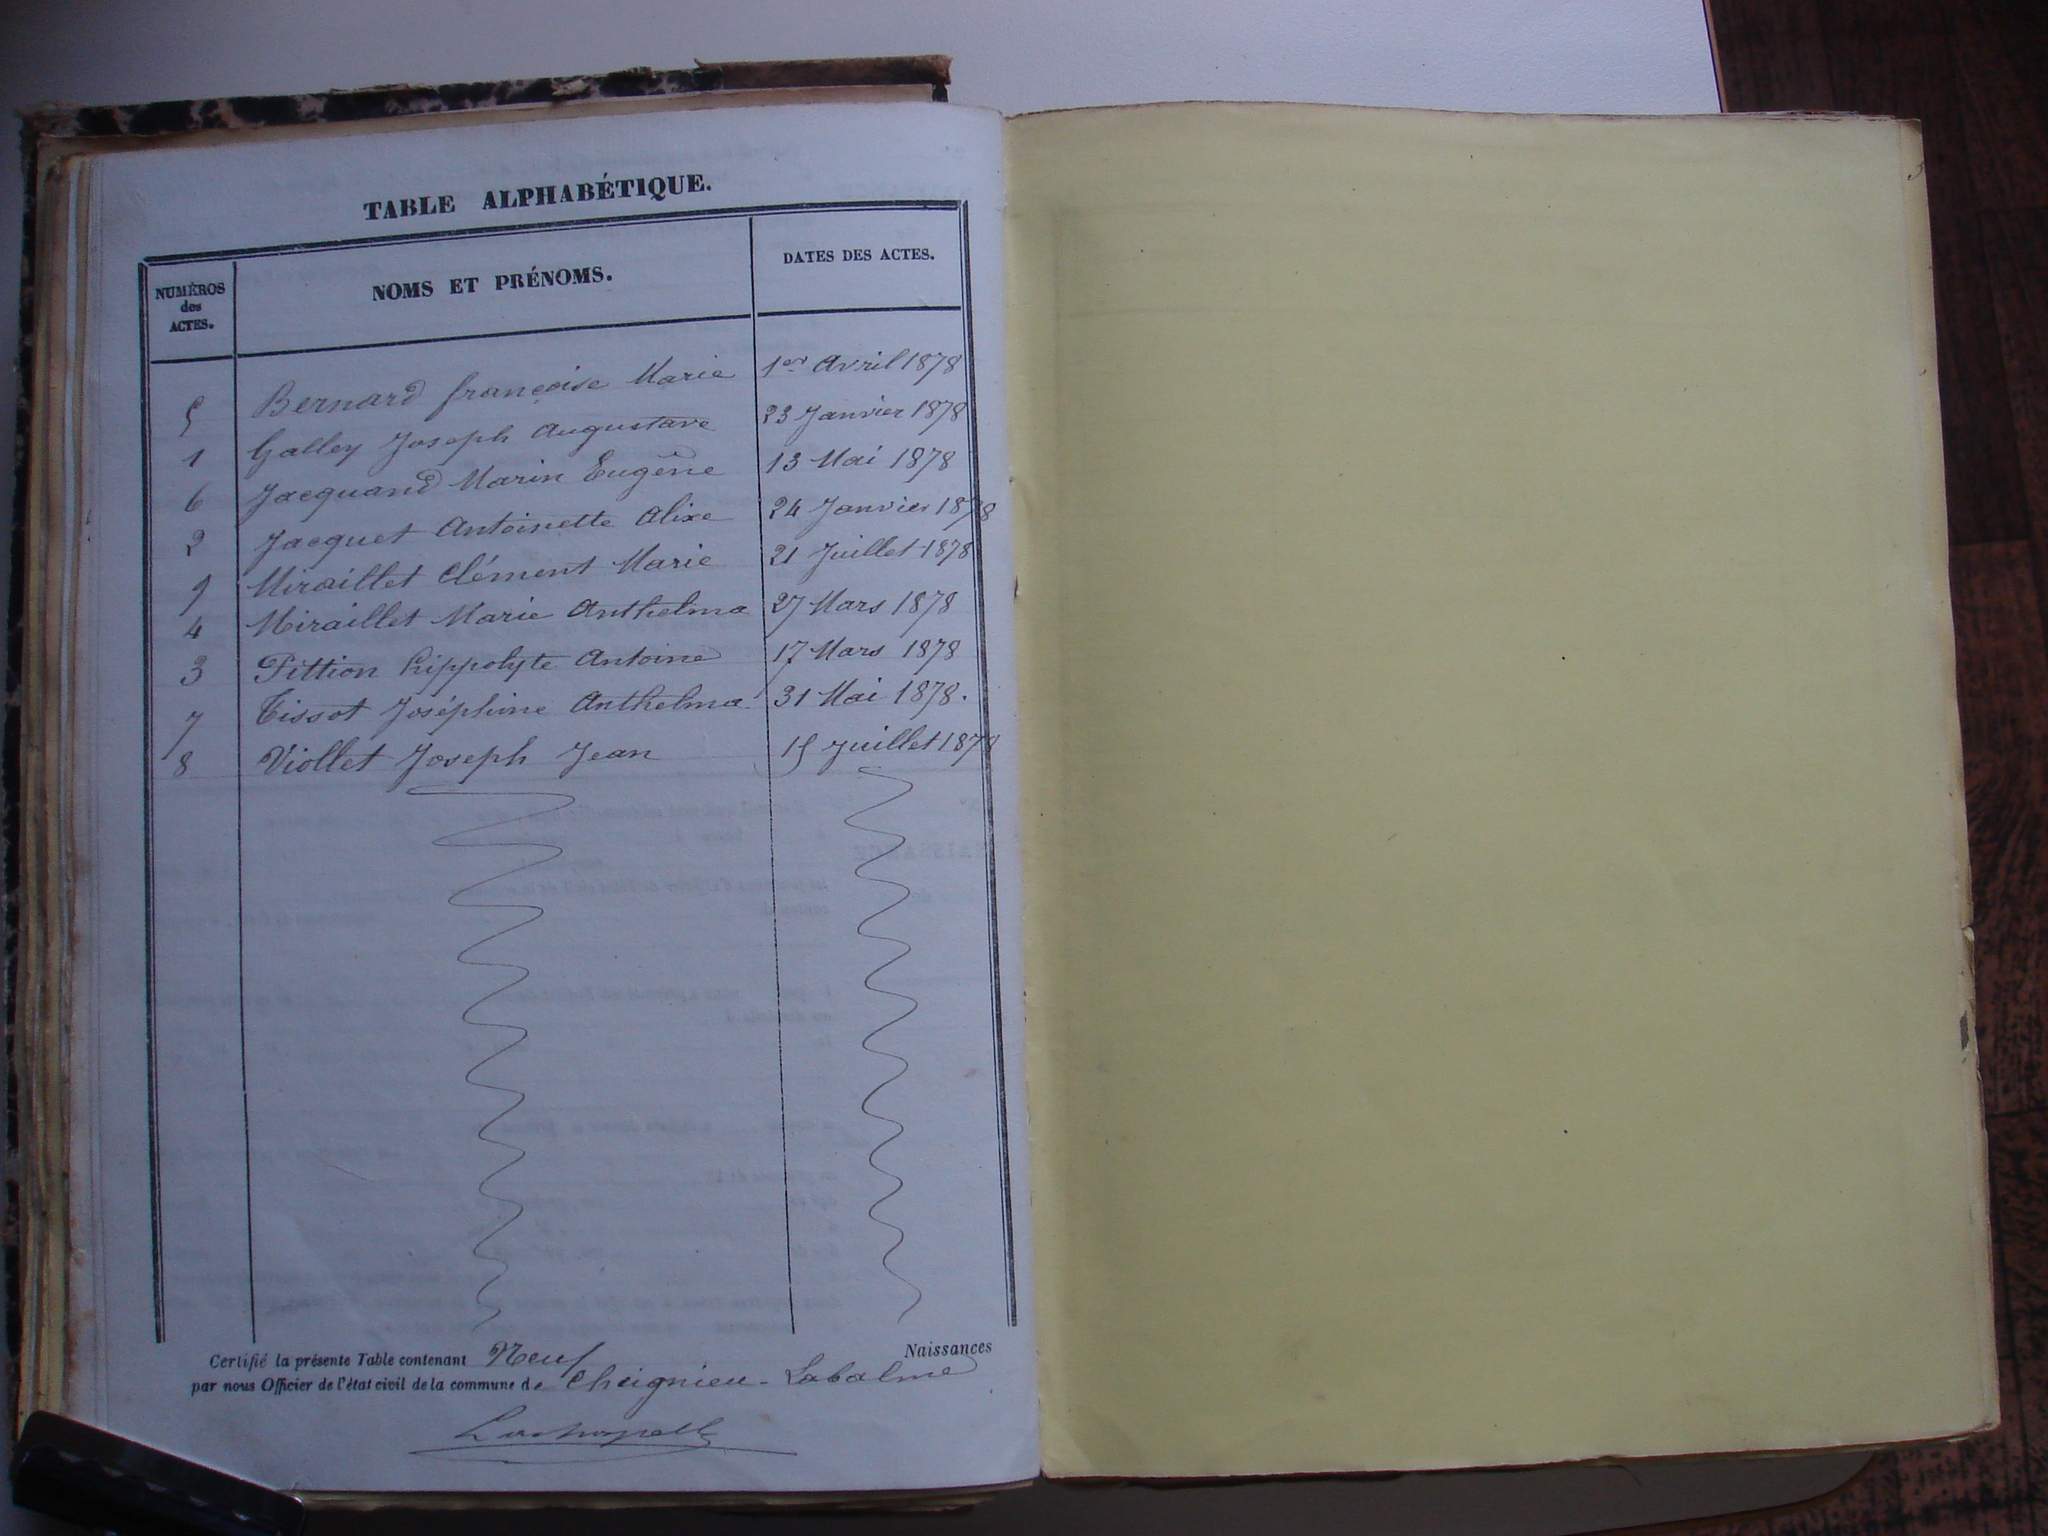 TABLE ALPHABÉTIQUE.
NUMÉROS des ACTES. NOMS ET PRÉNOMS. DATES DES ACTES.
5 Bernard françoise Marie 1er Avril 1878
1 Galley Joseph Augustave 23 Janvier 1878
6 Jacquand Marin Eugêne 13 Mai 1878
2 Jacquet Antoinette Alixe 24 Janvier 1878
9 Miraillet Clément Marie 21 Juillet 1878
4 Miraillet Marie Anthelma 27 Mars 1878
3 Pittion hippolyte Antoine 17 Mars 1878
7 Tissot Joséphine Anthelma 31 Mai 1878.
8 Viollet Joseph Jean 15 Juillet 1878
Certifié la présente Table contenant Neuf Naissances
par nous Officier de l'état civil de la commune de Cheignieu-Labalme